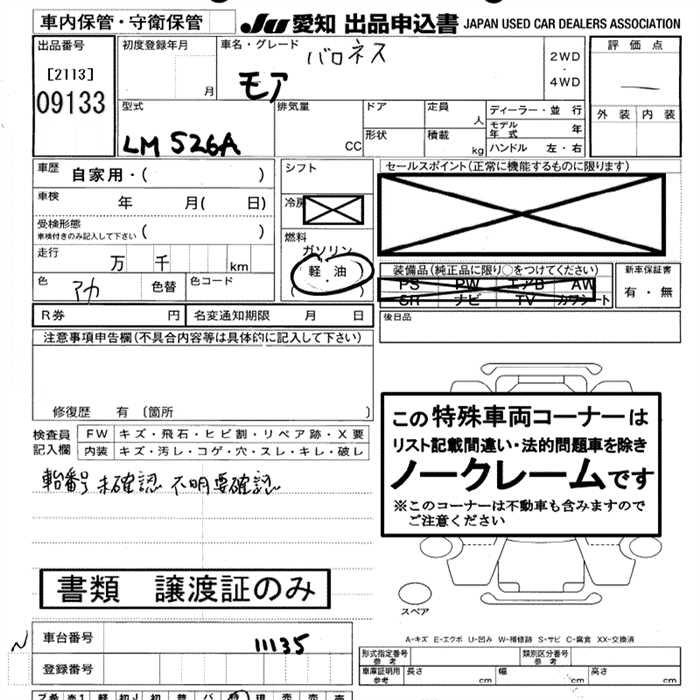 車内保管・守衛保管
JU 愛知 出品申込書 JAPAN USED CAR DEALERS ASSOCIATION
出品番号
[2113]
09133
初度登録年月
月
車名・グレード
バロネス
モア
2WD
・
4WD
評価点
外装 内装
型式
LM 526A
排気量
CC
ドア
形状
定員
人
積載
kg
ディーラー・並行
モデル年式 年
ハンドル 左・右
車歴
自家用・( )
車検 年 月( 日)
受検形態
車検付きのみ記入して下さい ( )
走行 万 千 km
色 アカ 色替 色コード
シフト
冷房
燃料
ガソリン
軽油
( ・ )
セールスポイント(正常に機能するものに限ります)
装備品(純正品に限り○をつけてください)
PS PW エアB AW
SR ナビ TV カワシート
新車保証書
有・無
R券 円 名変通知期限 月 日
後日品
注意事項申告欄(不具合内容等は具体的に記入して下さい)
修復歴 有 〔箇所 〕
検査員記入欄
FW キズ・飛石・ヒビ割・リペア跡・X要
内装 キズ・汚レ・コゲ・穴・スレ・キレ・破レ
未確認 不明要確認
この特殊車両コーナーは
リスト記載間違い・法的問題車を除き
ノークレームです
※このコーナーは不動車も含みますので
ご注意ください
書類 譲渡証のみ
スペア
車台番号 11135
登録番号
A-キズ E-エクボ U-凹み W-補修跡 S-サビ C-腐食 XX-交換済
形式指定番号 参考
類別区分番号 参考
車庫証明用 参考
長さ cm 幅 cm 高さ cm